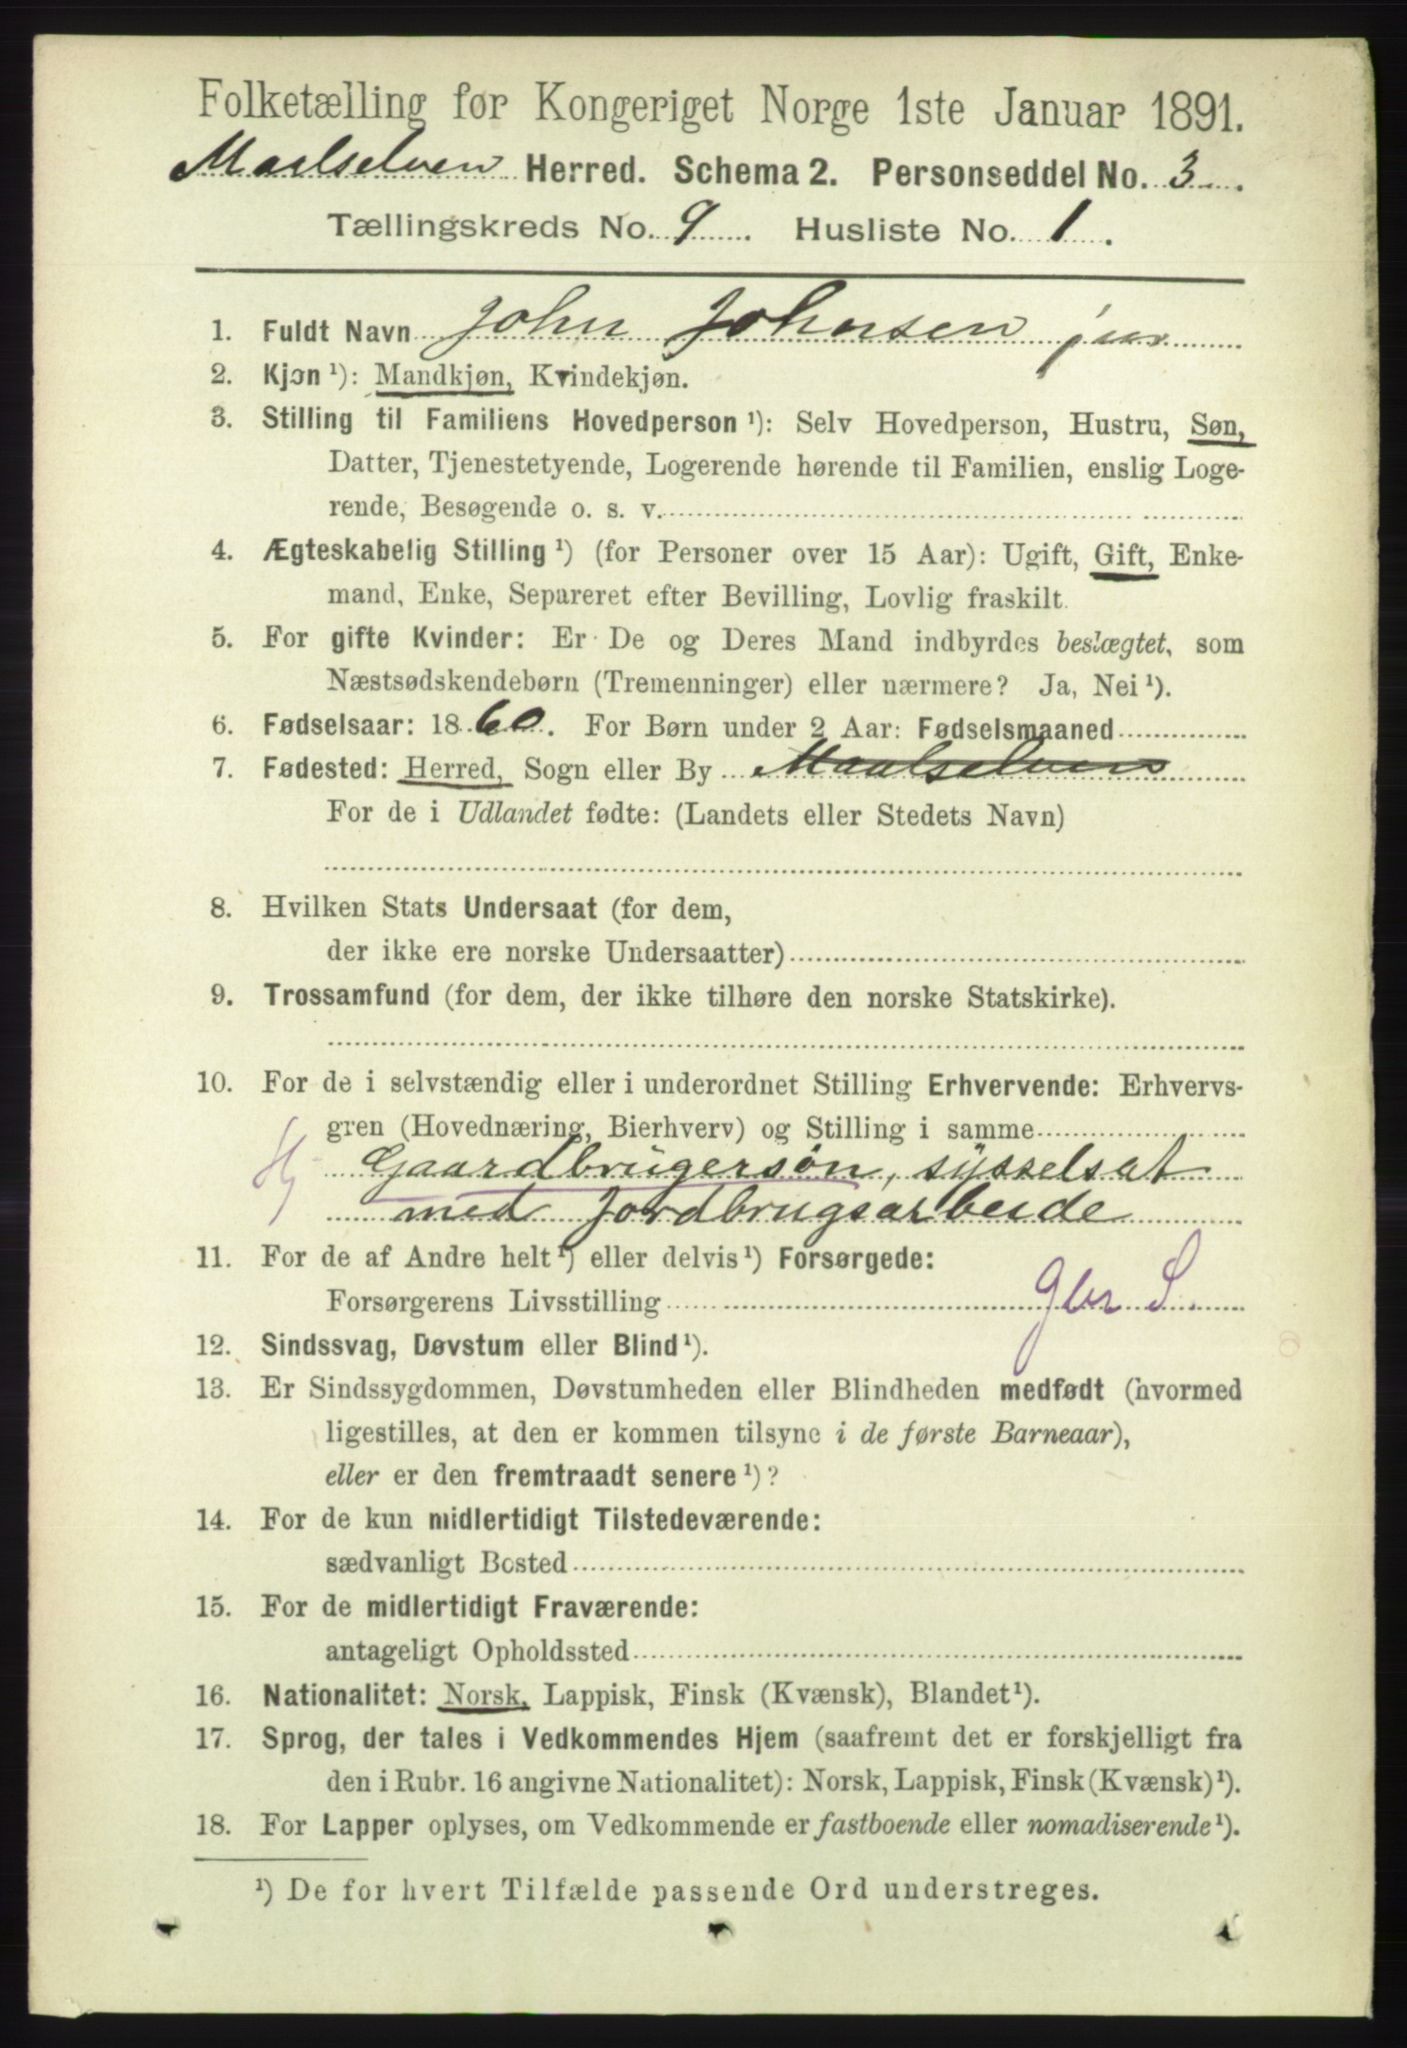 Folketælling for Kongeriget Norge 1ste Januar 1891.
Maalselven Herred. Schema 2. Personseddel No. 3
Tællingskreds No. 9. Husliste No. 1.
1. Fuldt Navn John Johnsen jun.
2. Kjøn ¹): Mandkjøn, Kvindekjøn.
3. Stilling til Familiens Hovedperson ¹): Selv Hovedperson, Hustru, Søn,
Datter, Tjenestetyende, Logerende hørende til Familien, enslig Loge-
rende, Besøgende o. s. v.
4. Ægteskabelig Stilling ¹) (for Personer over 15 Aar): Ugift, Gift, Enke-
mand, Enke, Separeret efter Bevilling, Lovlig fraskilt.
5. For gifte Kvinder: Er De og Deres Mand indbyrdes beslægtet, som
Næstsødskendebørn (Tremenninger) eller nærmere? Ja, Nei ¹).
6. Fødselsaar: 1860. For Børn under 2 Aar: Fødselsmaaned
7. Fødested: Herred, Sogn eller By Maalselven
For de i Udlandet fødte: (Landets eller Stedets Navn)
8. Hvilken Stats Undersaat (for dem,
der ikke ere norske Undersaatter)
9. Trossamfund (for dem, der ikke tilhøre den norske Statskirke).
10. For de i selvstændig eller i underordnet Stilling Erhvervende: Erhvervs-
gren (Hovednæring, Bierhverv) og Stilling i samme
Hj Gaardbrugersøn, sysselsat
med Jordbrugsarbeide
11. For de af Andre helt ¹) eller delvis ¹) Forsørgede:
Forsørgerens Livsstilling Gbr S.
12. Sindssvag, Døvstum eller Blind ¹).
13. Er Sindssygdommen, Døvstumheden eller Blindheden medfødt (hvormed
ligestilles, at den er kommen tilsyne i de første Barneaar),
eller er den fremtraadt senere ¹)?
14. For de kun midlertidigt Tilstedeværende:
sædvanligt Bosted
15. For de midlertidigt Fraværende:
antageligt Opholdssted
16. Nationalitet: Norsk, Lappisk, Finsk (Kvænsk), Blandet ¹).
17. Sprog, der tales i Vedkommendes Hjem (saafremt det er forskjelligt fra
den i Rubr. 16 angivne Nationalitet): Norsk, Lappisk, Finsk (Kvænsk) ¹).
18. For Lapper oplyses, om Vedkommende er fastboende eller nomadiserende ¹).
¹) De for hvert Tilfælde passende Ord understreges.